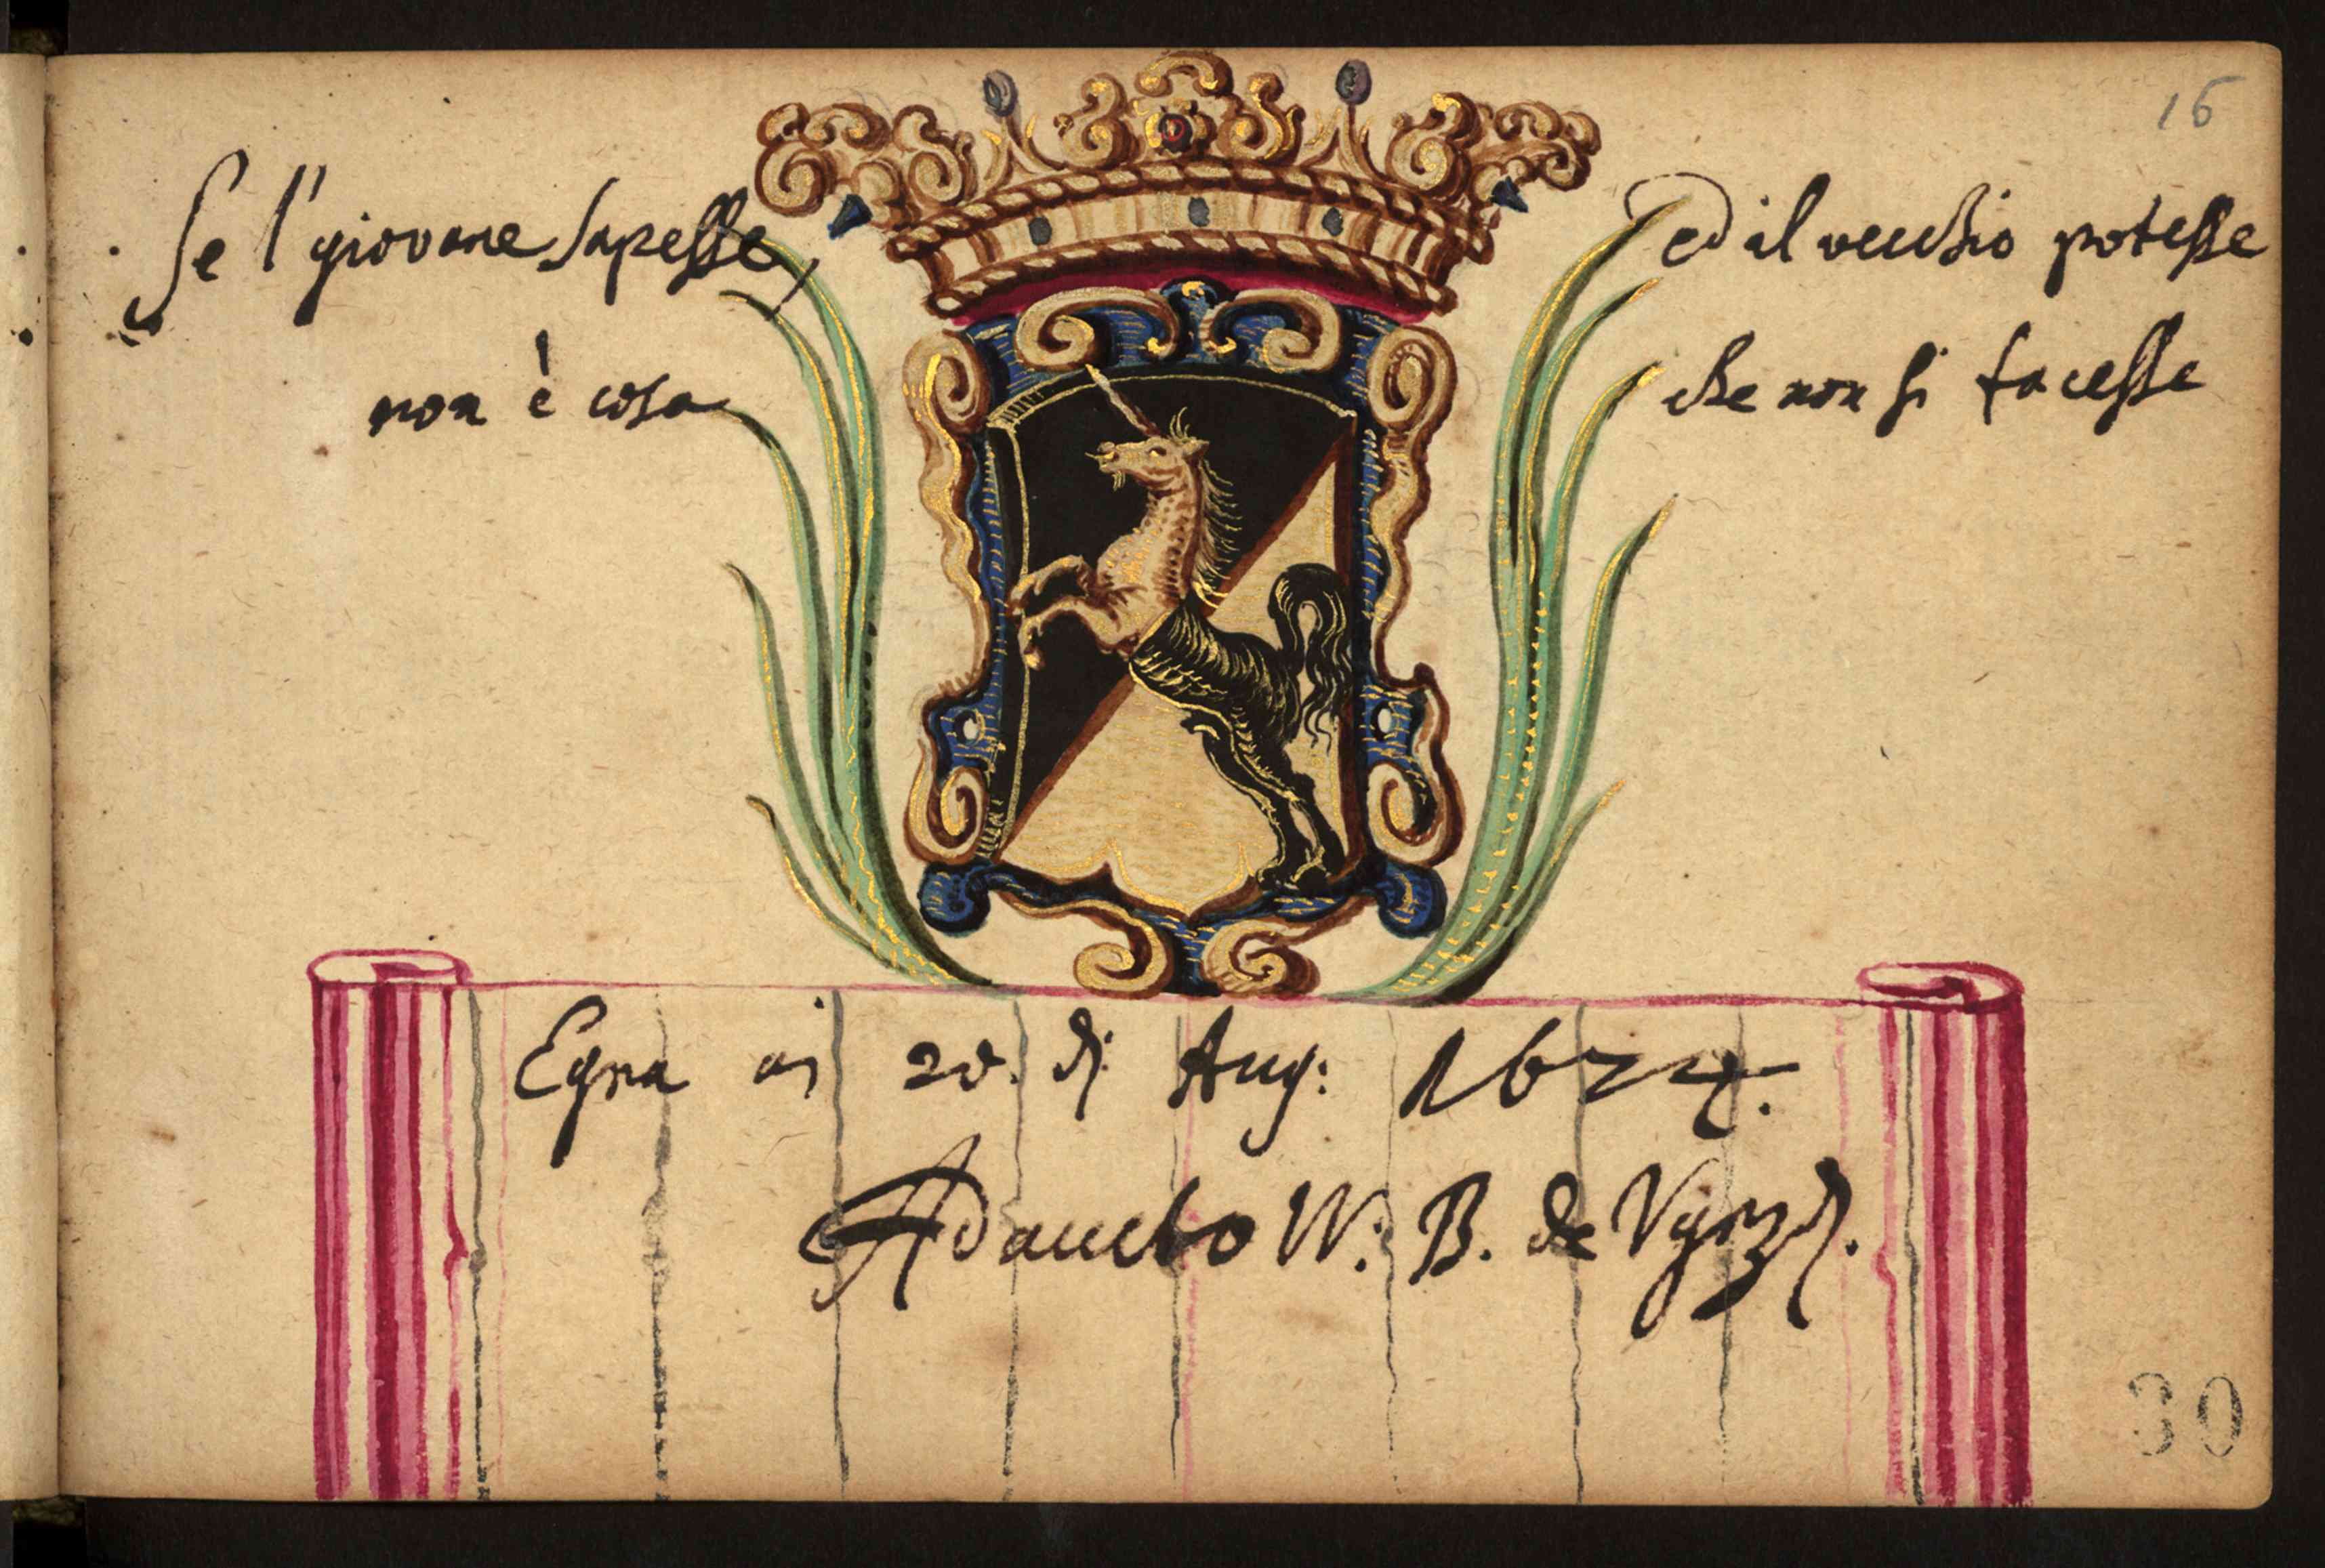 16
Se l'giovane sapesse, ed il vecchio potesse
non è cosa che non si facesse
Egna ai 20. di Aug: 1674.
Adaucto W: B. de
30